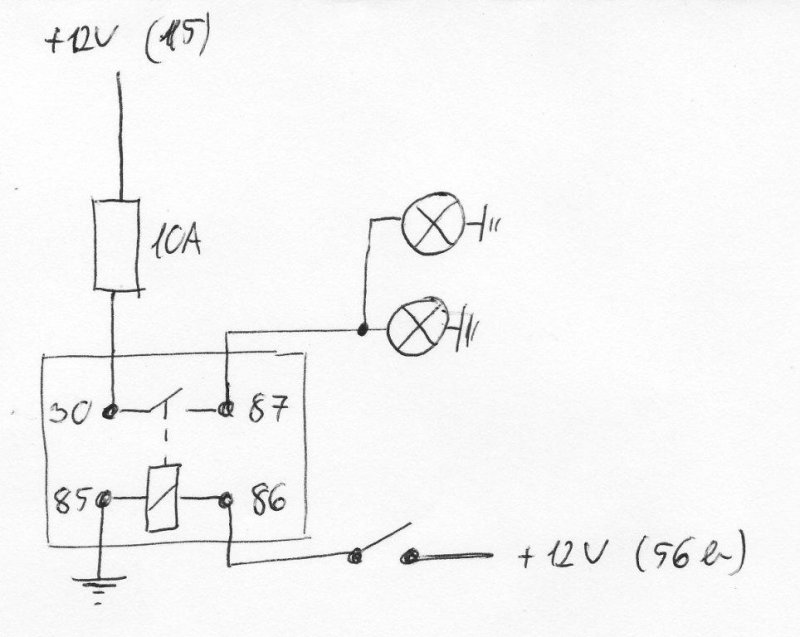 +12V (15)
10A
30
87
85
86
+12V (56a)